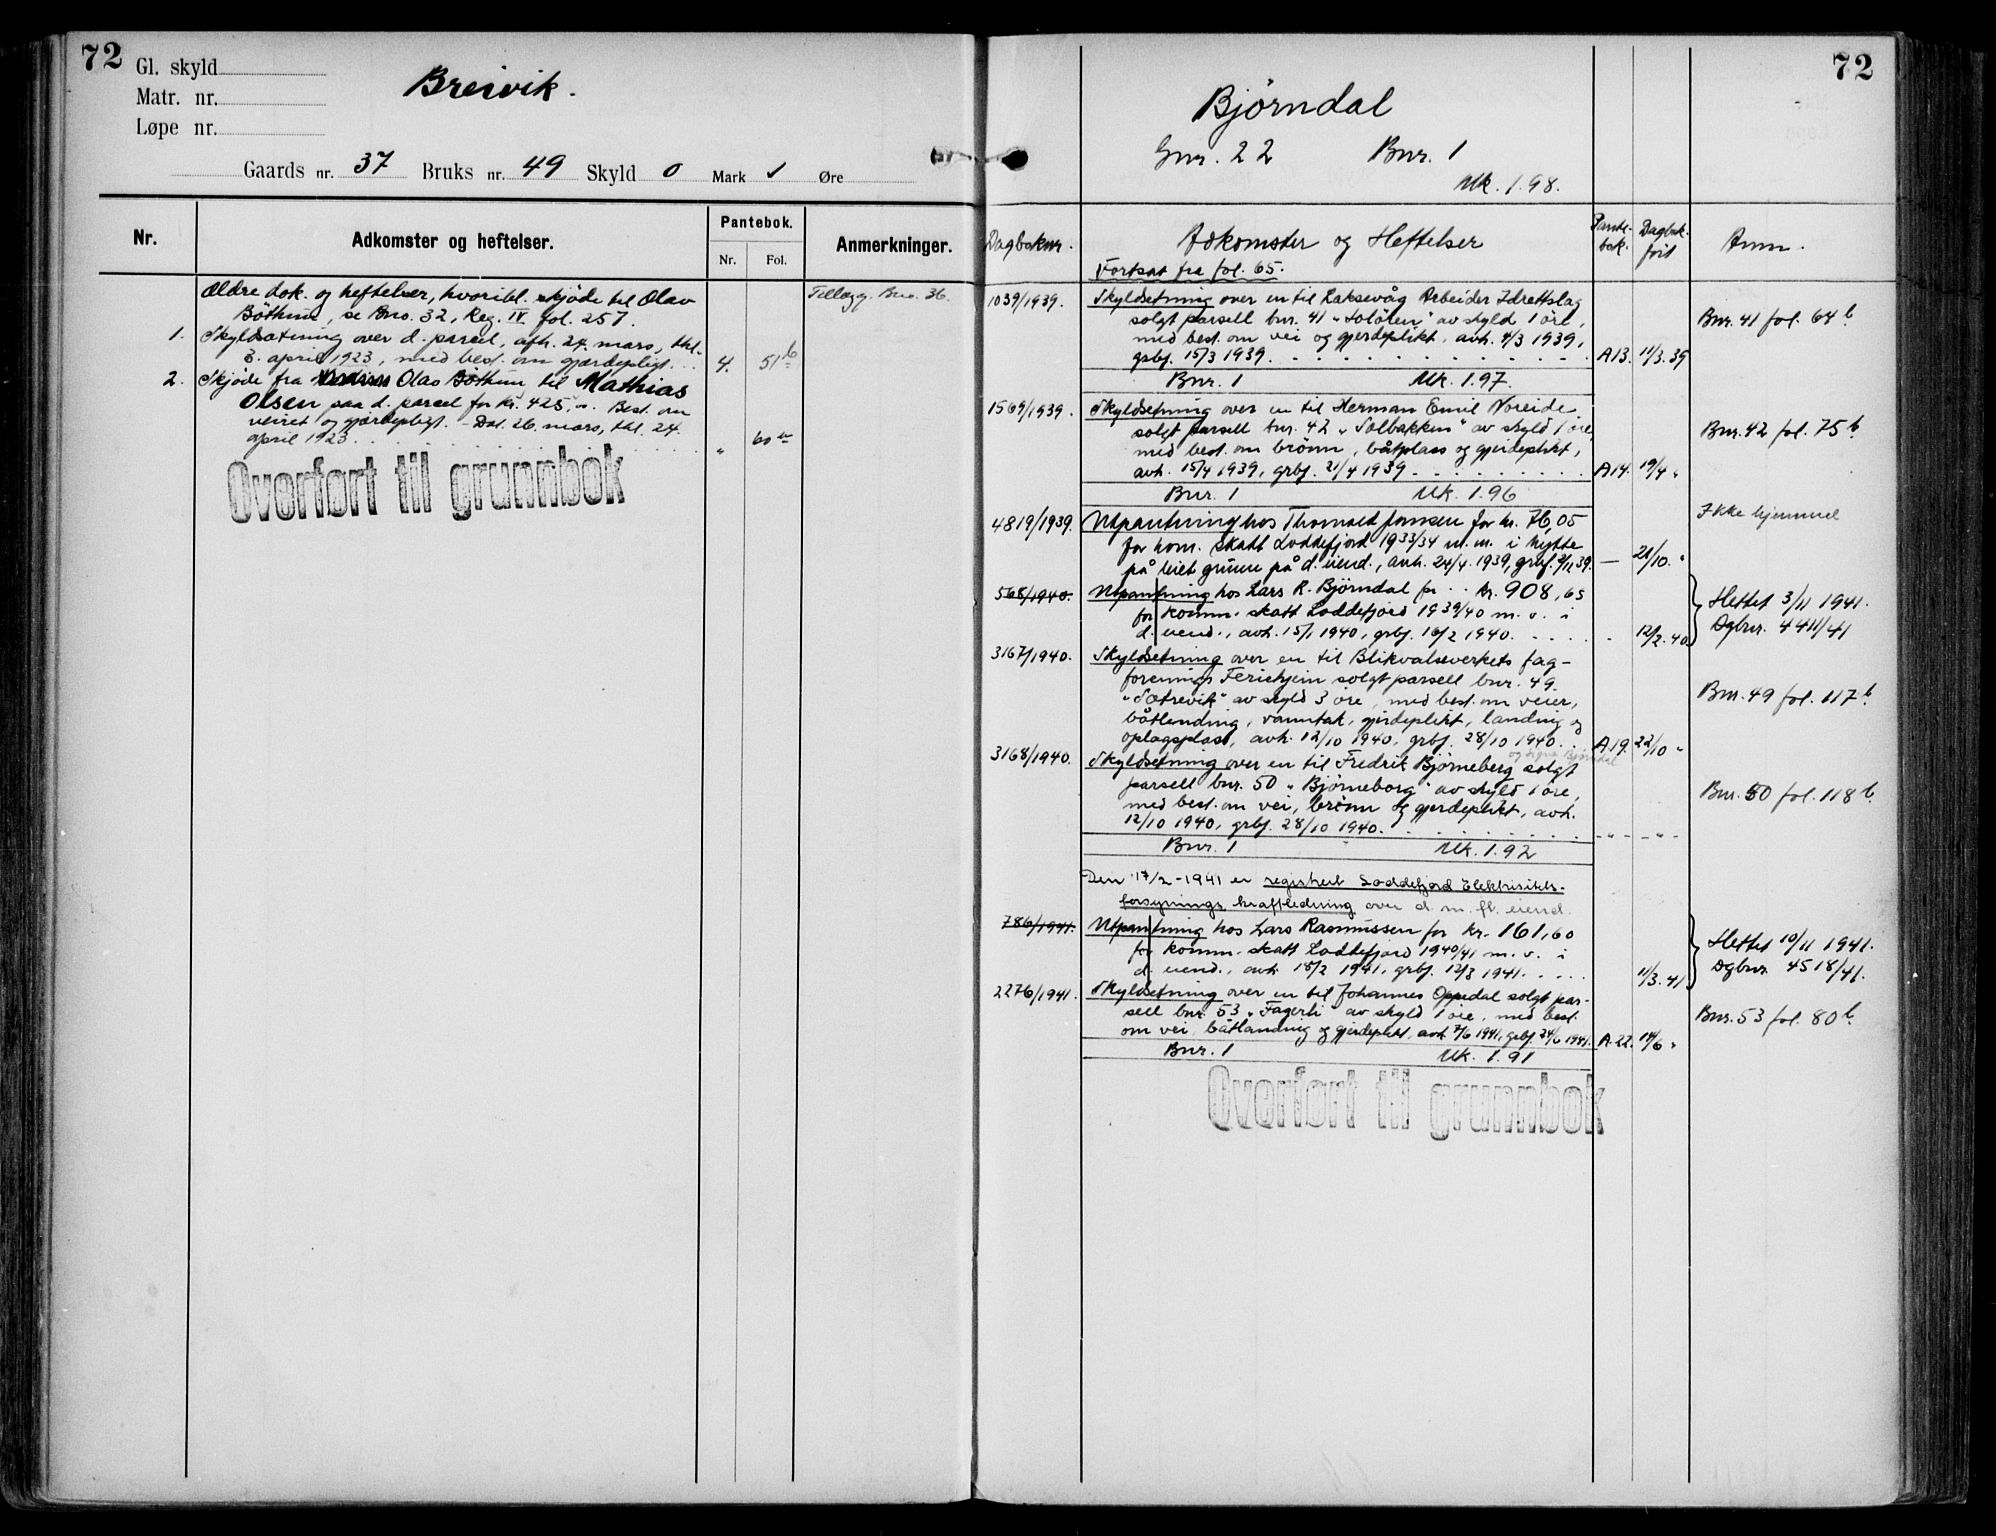 72
Gl. skyld
Matr. nr.
Løpe nr.
Breivik.
Gaards nr. 37 Bruks nr. 49 Skyld 0 Mark 1 Øre
Nr.
Adkomster og heftelser.
Pantebok.
Nr. Fol.
Anmerkninger.
Ældre dok. og heftelser, hvoribl. skjöde til Olav
Böthun, se Bno. 32, Reg. IV fol. 257.
Tillægg. Bno. 36.
1. Skyldsætning over d. parcel, afh. 24. mars, thl.
3. april 1923, med best. om gjærdepligt. . . 4. 51 b
2. Skjøde fra Olav Böthun til Mathias
Olsen paa d. parcel for kr. 425,-. Best. om
veiret og gjærdepligt. - Dat. 26. mars, thl. 24.
april 1923. " 60
Overført til grunnbok
72
Bjørndal
Gnr. 22 Bnr. 1
Mk. 1.98.
Dagboknr.
Adkomster og Heftelser
Pante-
bok.
Dagbok-
ført
Anm.
Fortsat fra fol. 65.
1039/1939. Skyldsetning over en til Laksevåg Arbeider Idrettslag
solgt parsell bnr. 41 „Soløren" av skyld 1 øre,
med best. om vei og gjerdeplikt, avh. 4/3 1939,
grbf. 15/3 1939. A13. 11/3.39
Bnr. 41 fol. 64 b
Bnr. 1 Mk. 1.97.
1569/1939. Skyldsetning over en til Herman Emil Noreide
solgt parsell bnr. 42 „Solbakken" av skyld 1 øre,
med best. om brønn, båtplass og gjerdeplikt,
avh. 15/4 1939, grbf. 21/4 1939. A14. 19/4 "
Bnr. 42 fol. 75 b.
Bnr. 1 Mk. 1.96
4819/1939. Utpantning hos Thorvald Jonsen for kr. 76,05
for kom. skatt Loddefjord 1933/34 m. m. i hytte
på leiet grunn på d. eiend., avh. 24/4. 1939, grbf. 2/11 39. — 21/10. "
Ikke hjemmel
568/1940. Utpantning hos Lars R. Bjørndal for . . kr. 908,65
for komm. skatt Loddefjord 1939/40 m. v. i
d. eiend., avh. 15/1 1940, grbf. 16/2 1940. 12/2. 40
Slettet 3/11 1941.
Dgbnr. 4411/41
3167/1940. Skyldsetning over en til Blikvalseverkets fag-
forenings Feriehjem solgt parsell bnr. 49
„Sætrevik" av skyld 3 øre, med best. om veier,
båtlending, vanntak, gjerdeplikt, landing og
oplagsplass, avh. 12/10 1940, grbf. 28/10 1940. A19. 22/10 "
Bnr. 49 fol. 117 b
og Signe Bjørndal
3168/1940. Skyldsetning over en til Fredrik Bjørneberg solgt
parsell bnr. 50 „Bjørneborg" av skyld 1 øre,
med best. om vei, brønn og gjerdeplikt, avh.
12/10 1940, grbf. 28/10 1940. - " - - " -
Bnr. 50 fol. 118 b.
Bnr. 1 Mk. 1.92
Den 17/2-1941 er registrert Loddefjord Elektrisitets-
forsynings kraftledning over d. m. fl. eiend.
786/1941. Utpantning hos Lars Rasmussen for kr. 161,60
for komm. skatt Loddefjord 1940/41 m. v. i
d. eiend., avh. 18/2 1941, grbf. 12/3 1941. 11/3. 41
Slettet 10/11 1941.
Dgbnr. 4518/41.
2276/1941. Skyldsetning over en til Johannes Oppedal solgt par-
sell bnr. 53 „Fagerli" av skyld 1 øre, med best.
om vei, båtlanding og gjerdeplikt, avh. 7/6 1941, grbf. 24/6 1941. A.22. 14/6 "
Bnr. 53 fol. 80 b.
Bnr. 1 Mk. 1.91
Overført til grunnbok